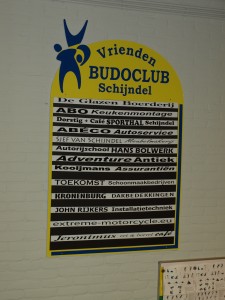 Vrienden
BUDOCLUB
Schijndel
De Glazen Boerderij
ABO Keukenmontage
Derstig • Café SPORTHAL Schijndel
ABÉCO Autoservice
SJEF VAN SCHIJNDEL
Autorijschool HANS BOLWERK
Adventure Antiek
Kooijmans Assurantiën
TOEKOMST Schoonmaakbedrijven
KRONENBURG DAKBEDEKKINGEN
JOHN RIJKERS Installatietechniek
extreme-motorcycle.eu
Jeronimus café